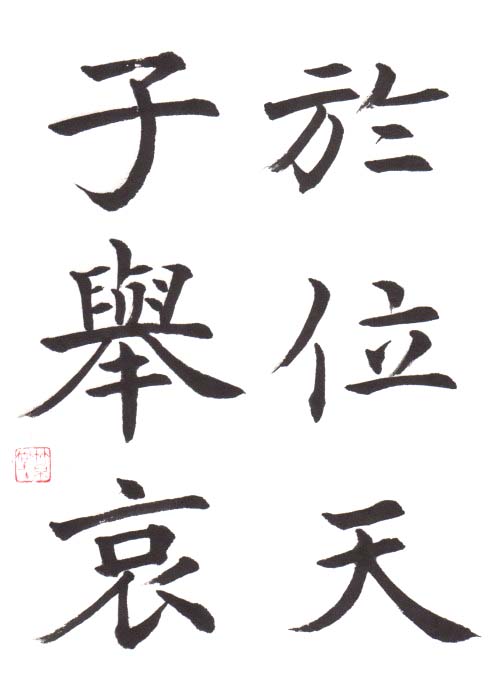 於位天
子舉哀